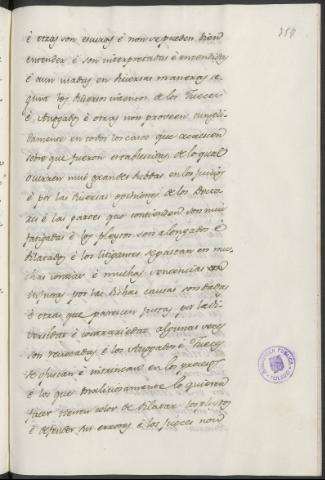 350
è otras son escuras è non se pueden bien
entender è son interpretadas è entendidas
è aun usadas en diversas maneras se
gunt los diversos intentos de los Jueces
è Avogados è otras non proveen cumpli-
damente en todos los casos que acaescen
sobre que fueron establescidas de lo qual
ocurren mui grandes dubdas en los juicios
è por las diversas opiniones de los Docto
res è las partes que contienden son mui
fatigadas è los pleytos son alongados è
dilatados è los litigantes gastan en mu
chas contias è muchas sentencias
injustas por las dichas causas son dadas
è otras que parescen justas por la di-
versidad è contrariedat algunas veces
son revocadas è los Avogados è Jueces
se ofuscan è intrincan en los procesos
è los que maliciosamente lo quieren
facer tienen color de dilatar los pleytos
è defender sus errores è los jueces non
BIBLIOTECA PUBLICA
TOLEDO